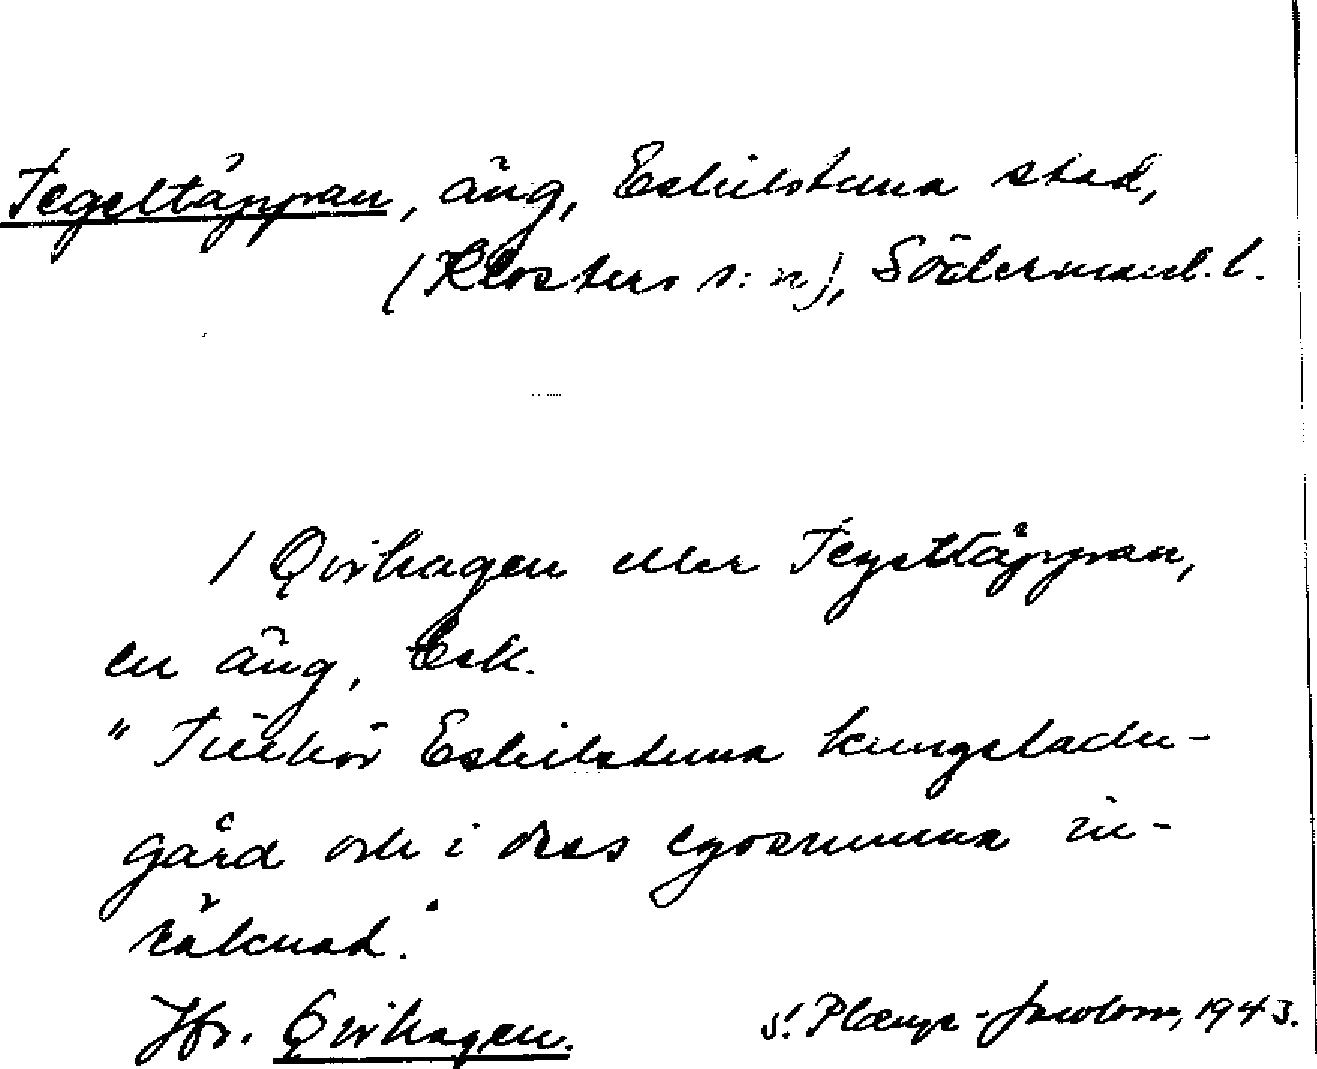 Tegeltäppan, äng, Eskilstuna stad,
(Klosters s:n), Södermanl. l.
/ Qvihagen eller Tegeltäppan,
en äng, Esk.
" Tillhör Eskilstuna kungsladu-
gård och i dess egosumma in-
räknad."
Jfr. Qvihagen.
S. Plænge-Jacobson, 1943.